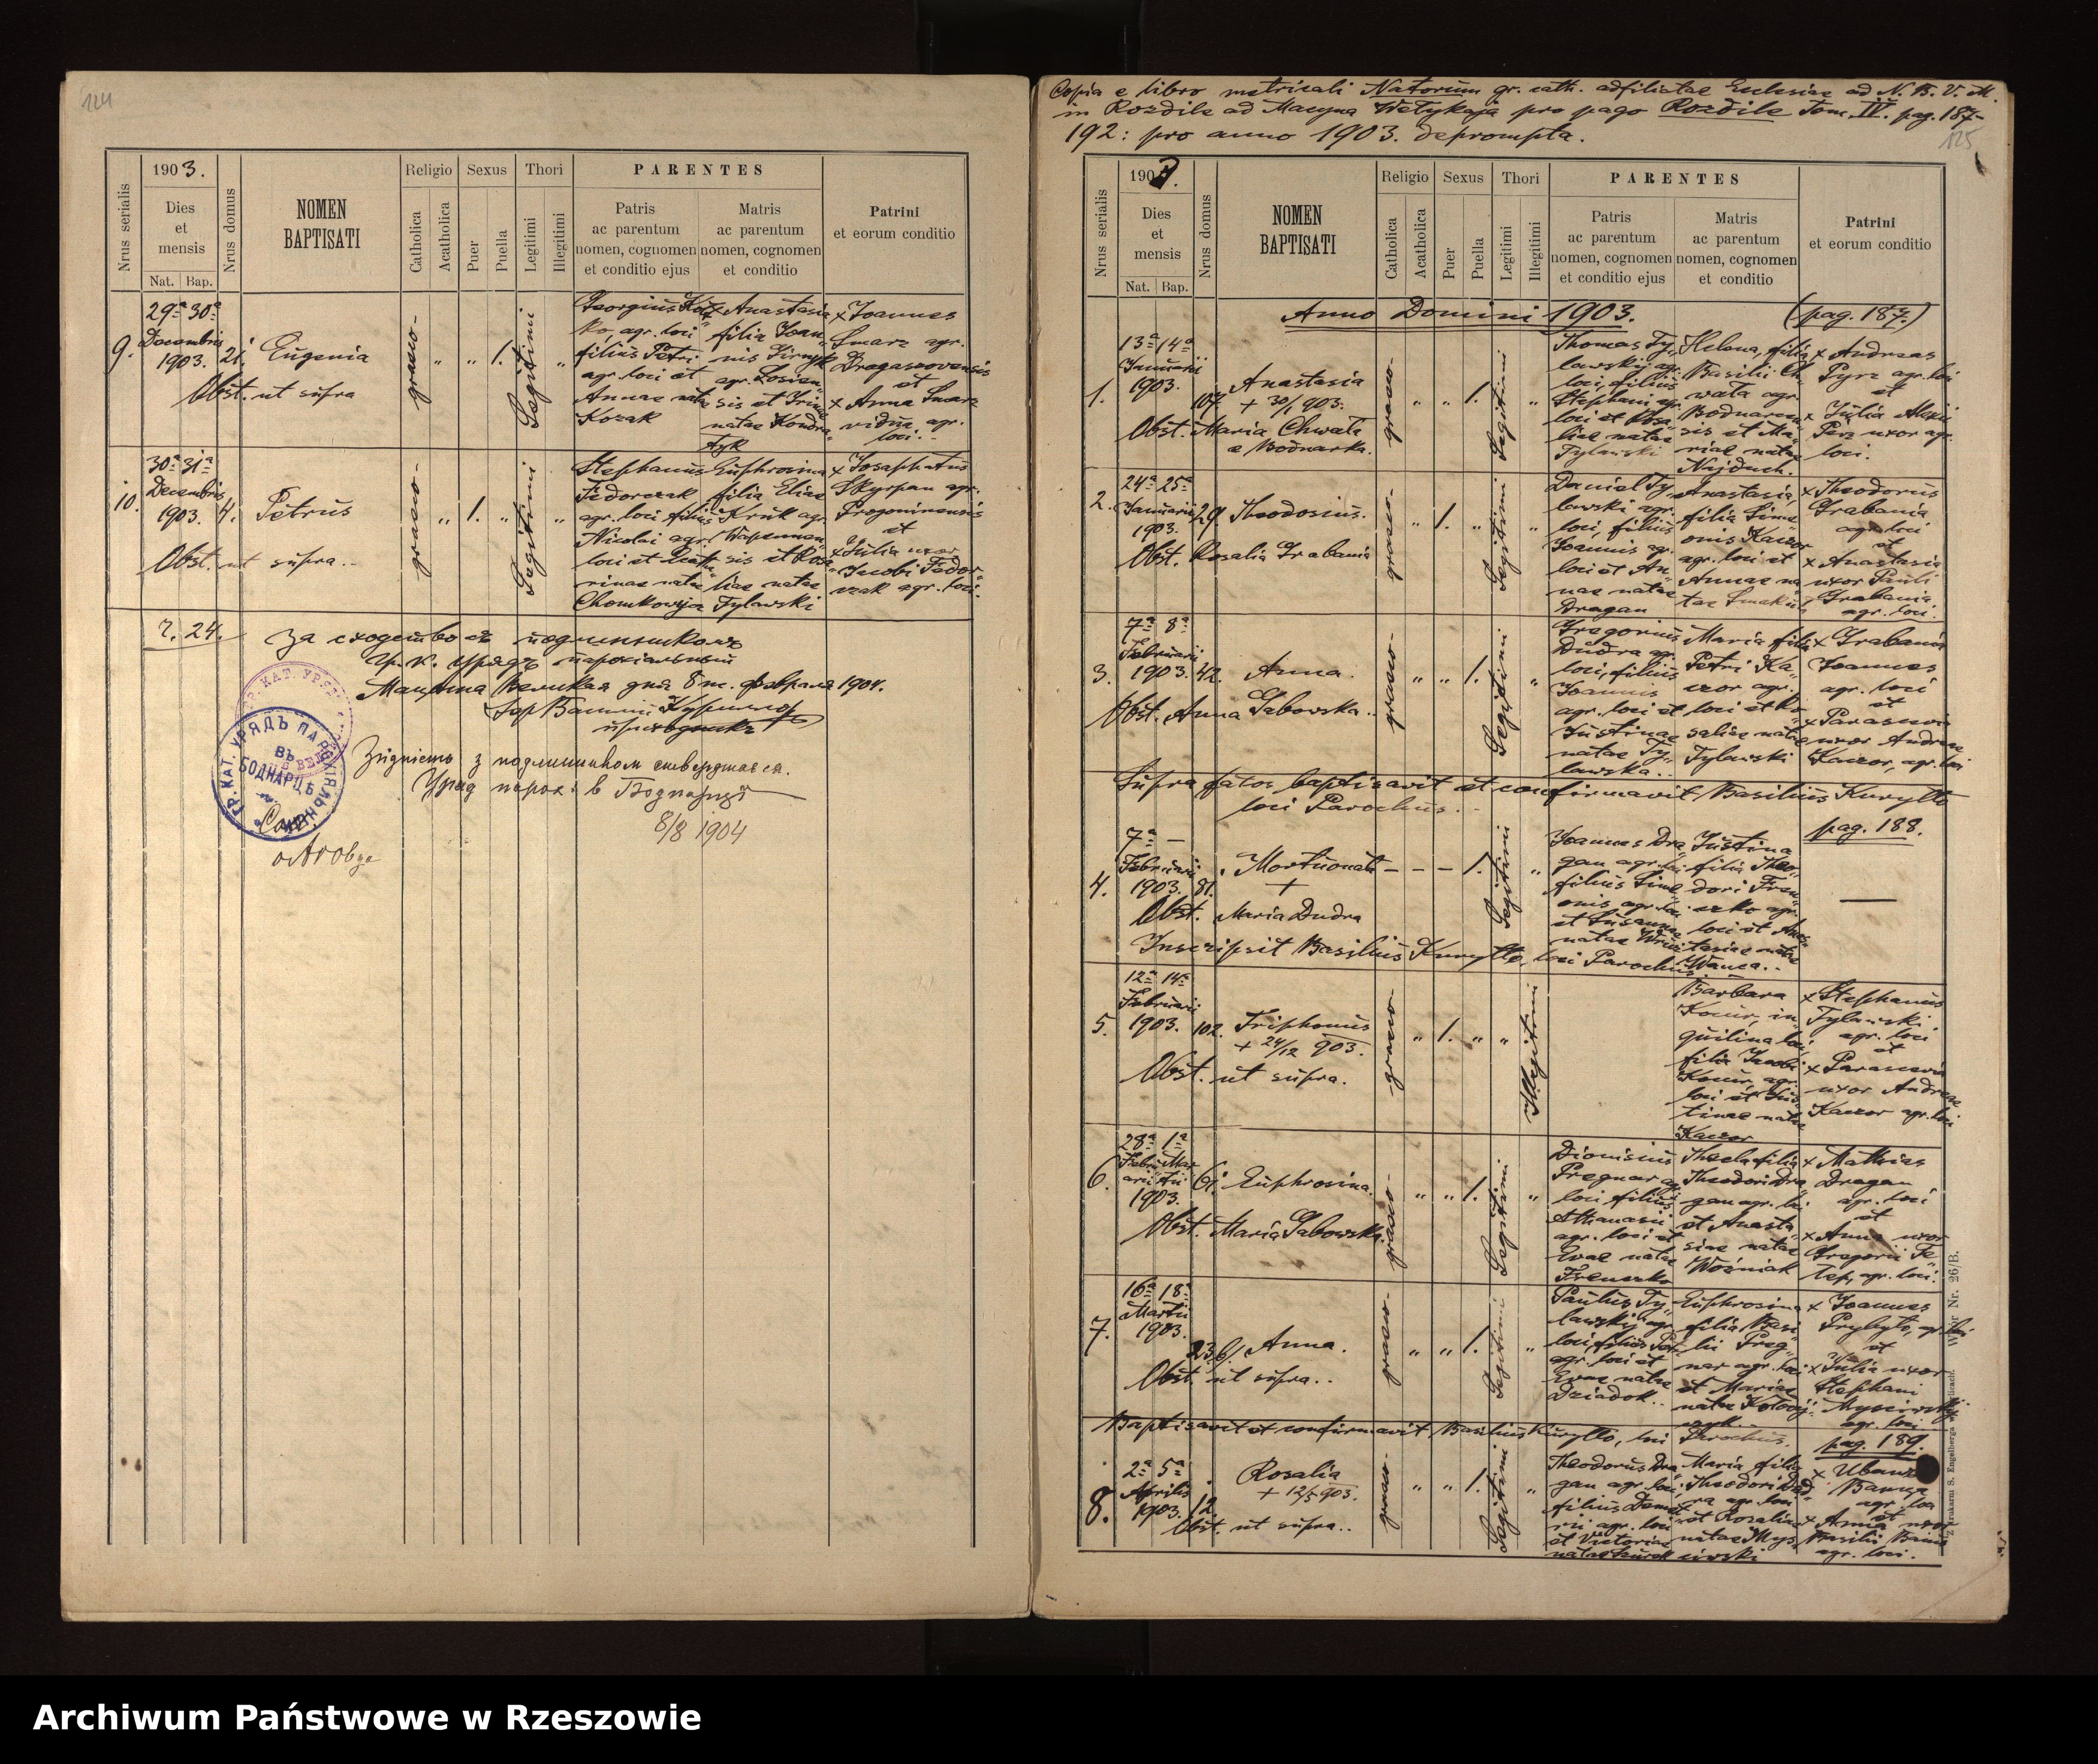 124
1903.
Nrus serialis
Dies
et
mensis
Nat. Bap.
Nrus domus
NOMEN
BAPTISATI
Religio
Catholica
Acatholica
Sexus
Puer
Puella
Thori
Legitimi
Illegitimi
PARENTES
Patris
ac parentum
nomen, cognomen
et conditio ejus
Matris
ac parentum
nomen, cognomen
et conditio
Patrini
et eorum conditio
9.
29ª 30ª
Decembris
1903. 21.
Eugenia
Obst. ut supra
graeco-
" " 1. "
Legitimi
ko, agr. loci
filius Petri
agr. loci et
Annae natae
Kozak
Anastasia
filia Joan
nis
sis et
natae Kondra
tyk
x Joannes
Smarz agr.
et
x Anna Smarz
vidua, agr.
loci.
10.
30ª 31ª
Decembris
1903. 4.
Petrus
Obst. ut supra.
graeco-
" 1. " "
Legitimi
Stephanus
Fedorczak
agr. loci filius
Nicolai agr.
loci et
rinae natae
Chomkowja
Euphrosina
filia Eliae
Kruk agr.
sis et Rosa
liae natae
Tylawski
x Josaphatus
Skyrpan agr.
et
x Julia uxor
Jacobi Fedor
czak agr. loci.
Ч. 24.
За сходство съ подлинникомъ
Гр. к. Урядъ парохіальный
Мацына Великая дня 8 м. февраля 1904.
ГР. КАТ. УРЯДЪ ПАРОХІЯЛЬН
ВЪ
БОДНАРЦѢ
з подлинником
Уряд парох. в
8/8 1904
Copia e libro metricali Natorum gr. cath. adfiliatae Ecclesiae ad N. B. V. M.
in Rozdile ad Macyna Wełykaja pro pago Rozdile Tom. IV. pag. 187-
192: pro anno 1903. deprompta.
125
190
Nrus serialis
Dies
et
mensis
Nat. Bap.
Nrus domus
NOMEN
BAPTISATI
Religio
Catholica
Acatholica
Sexus
Puer
Puella
Thori
Legitimi
Illegitimi
PARENTES
Patris
ac parentum
nomen, cognomen
et conditio ejus
Matris
ac parentum
nomen, cognomen
et conditio
Patrini
et eorum conditio
Anno Domini 1903.
(pag. 187.)
1.
13ª 14ª
Januarii
1903.
107.
Anastasia
+ 30/1 903.
Obst. Maria Chwata
e Bodnarka.
graeco-
" " 1. "
Legitimi
Thomas Ty
lawskyj agr.
loci, filius
Stephani agr.
loci et Rosa
liae natae
Tylawski
Helena, filia
Basilii Ch
wata agr.
Bodnaren
sis et Ma
riae natae
Najduch.
x Andreas
Pyrz agr. loci
et
x Julia Alexii
Perz uxor agr.
loci.
2.
24ª 25ª
Januarii
1903. 29.
Theodosius.
Obst. Rosalia Grabania
graeco-
" 1. " "
Legitimi
Daniel Ty
lawski agr.
loci, filius
Joannis agr.
loci et An
nae natae
Dragan
Anastasia,
filia Sime
onis Kaczor
agr. loci et
Annae na
tae
x Theodorus
Grabania
agr. loci
et
x Anastasia
uxor Pauli
Grabania
agr. loci.
3.
7ª 8ª
Februarii
1903. 42.
Anna.
Obst. Anna Gabowska.
graeco-
" " 1. "
Legitimi
Gregorius
Dudra agr.
loci, filius
Joannis
agr. loci et
Justinae
natae Ty
lawska.
Maria filia
Petri Ka
czor agr.
loci et Ro
saliae natae
Tylawski
x Grabania
Joannes
agr. loci
et
x Parascevia
uxor Andreae
Kaczor, agr. loci
Supra fatos baptisavit et confirmavit Basilius Kuryłło
loci Parochus.
pag. 188.
4.
7ª —
Februarii
1903. 81.
Mortuonata
+
Obst. Maria Dudra
— — — 1. "
Legitimi
Joannes Dra
gan agr. loci
filius Sime
onis agr. loci
et Susannae
natae
Justina
filia Theo
dori Fren
czko agr.
loci et Anas
tasiae natae
Wanca.
—
Inscripsit Basilius Kuryłło, loci Parochus
5.
12ª 14ª
Februarii
1903. 102.
Triphonius
+ 24/12 903.
Obst. ut supra.
graeco-
" 1. " "
Illegitimi
Barbara
Kocur, in
quilina loci,
filia Jacobi
Kocur, agr.
loci et Jus
tinae natae
Kaczor
x Stephanus
Tylawski
agr. loci
et
x Parascevia
uxor Andreae
Kaczor agr. loci
6.
28ª 1ª
Febru Mar
arii tii
1903.
61.
Euphrosina.
Obst. Maria Gabowska.
graeco-
" " 1. "
Legitimi
Dionisius
Pregnar agr.
loci filius
Athanasii
agr. loci et
Evae natae
Frenczko
Thecla filia
Theodori Dra
gan agr. loci
et Anasta
siae natae
Woźniak
x Mathias
Dragan
agr. loci
et
x Anna uxor
Gregorii Fe
agr. loci.
7.
16ª 18ª
Martii
1903.
Anna.
Obst. ut supra..
graeco-
" " 1. "
Legitimi
Paulus Ty
lawskyj agr.
loci, filius
agr. loci et
Evae natae
Dziadok..
Euphrosina
filia Basi
lii Preg
nar agr. loci
et Mariae
natae
x Joannes
Prybyło, agr. loci
et
x Julia uxor
Stephani
agr. loci
Baptisavit et confirmavit Basilius Kuryłło, loci Parochus.
pag. 189.
8.
2ª 5ª
Aprilis
1903. 12.
Rosalia
+ 12/5 903.
Obst. ut supra..
graeco-
" " 1. "
Legitimi
Theodorus Dra
gan agr. loci,
filius Demet
rii agr. loci
et Victoriae
Maria filia
Theodori Dud
ra agr. loci
et Rosaliae
natae Mys
ciwski
Banya
agr. loci
et
x Anna uxor
Basilii
agr. loci.
Z drukarni S. Engelberga w Gorlicach. Wzór Nr. 26/B.
Archiwum Państwowe w Rzeszowie